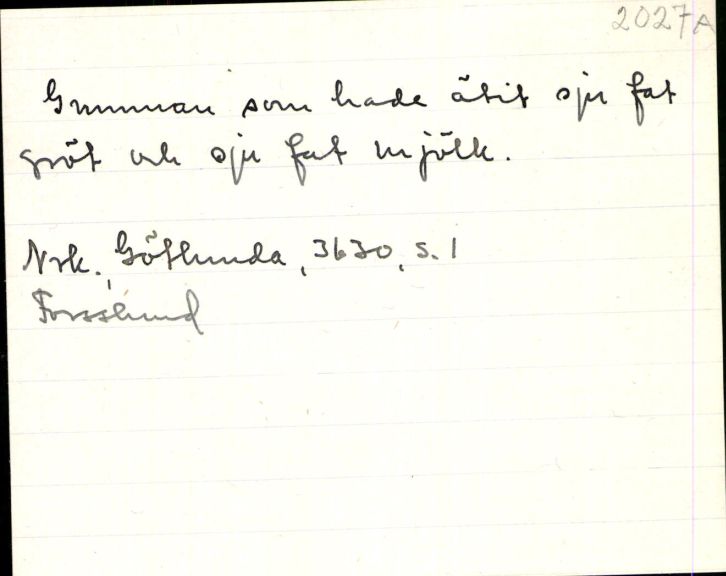 2027A
Gumman som hade ätit sju fat
gröt och sju fat mjölk.
Nrk., Götlunda, 3630, s. 1
Forsslund